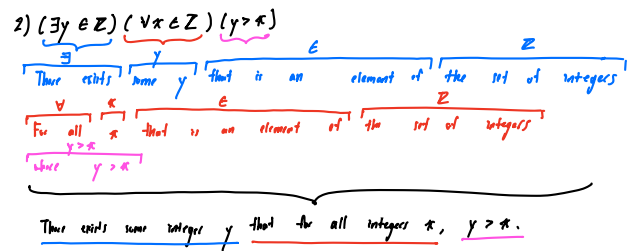 2) (∃y ∈ ℤ) (∀x ∈ ℤ) (y > x)
∃ y ∈ ℤ
There exists some y that is an element of the set of integers
∀ x ∈ ℤ
For all x that is an element of the set of integers
y > x
where y > x
There exists some integer y that for all integers x, y > x.